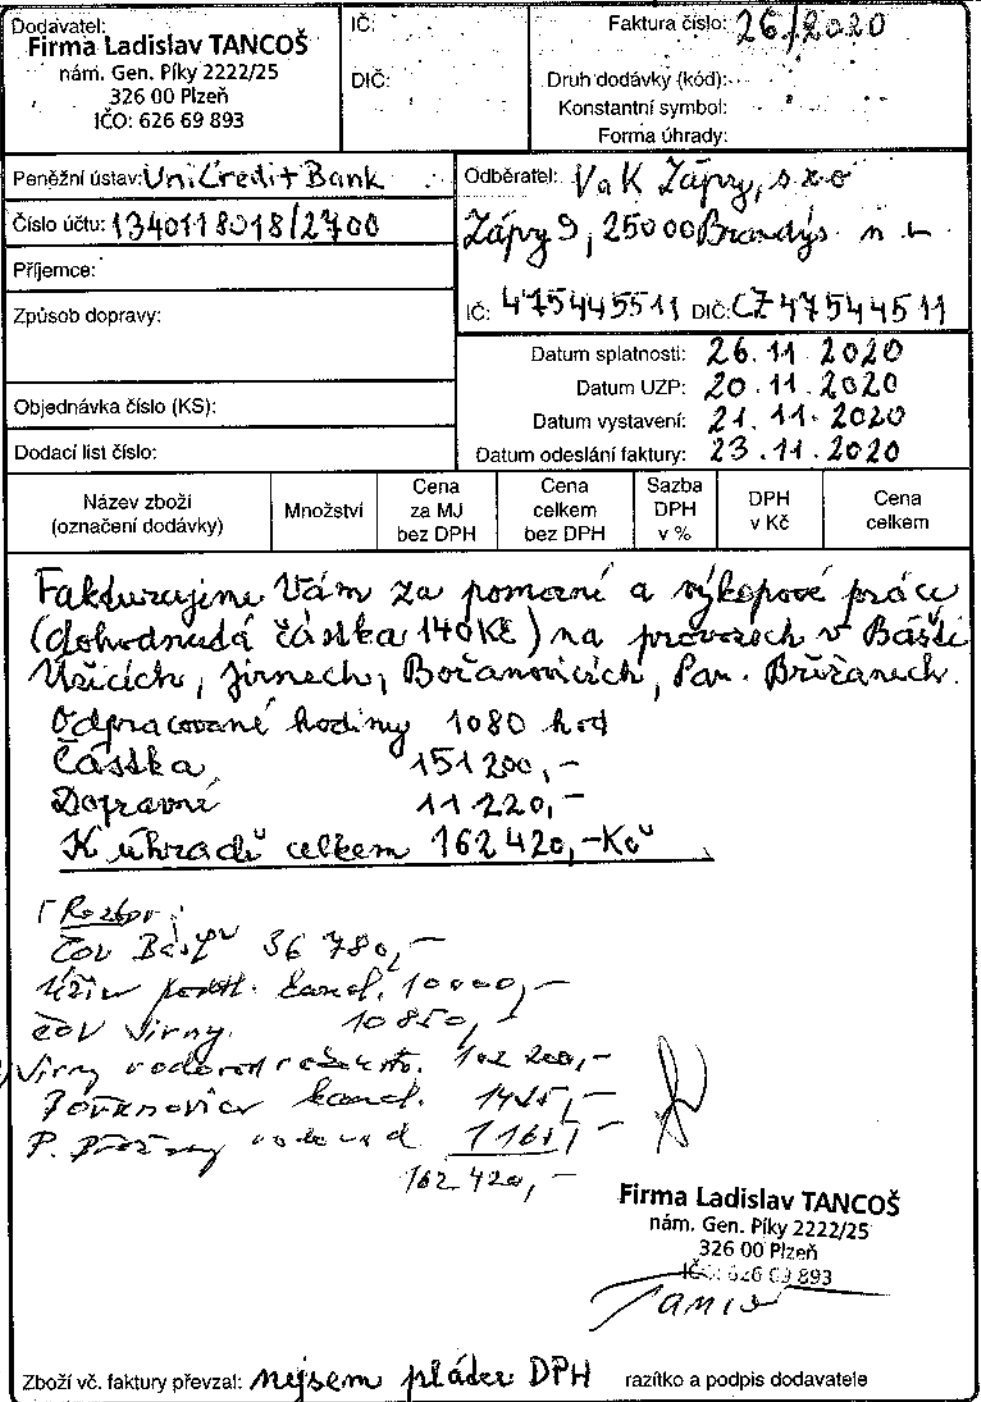 Dodavatel:
Firma Ladislav TANCOŠ
nám. Gen. Píky 2222/25
326 00 Plzeň
IČO: 626 69 893
IČ:
DIČ:
Faktura číslo: 26/2020
Druh dodávky (kód):
Konstantní symbol:
Forma úhrady:
Peněžní ústav: UniCredit Bank
Číslo účtu: 1340118018/2700
Příjemce:
Způsob dopravy:
Objednávka číslo (KS):
Dodací list číslo:
Odběratel: VaK Zápy, s.r.o
Zápy 9, 25000 Brandýs n. L
IČ: 475445511 DIČ: CZ47544511
Datum splatnosti: 26.11 2020
Datum UZP: 20.11.2020
Datum vystavení: 21.11.2020
Datum odeslání faktury: 23.11.2020
Název zboží
(označení dodávky)
Množství
Cena
za MJ
bez DPH
Cena
celkem
bez DPH
Sazba
DPH
v %
DPH
v Kč
Cena
celkem
Fakturujeme Vám za pomocné a výkopové práce
(dohodnutá částka 140Kč) na provozech v Bášti
Úžicích, Jirnech, Bořanovicích, Pan. Břežanech.
Odpracované hodiny 1080 hod
Částka 151200,-
Dopravné 11220,-
K úhradě celkem 162420,-Kč
Rozbor:
ČOV Bášť 36780,-
Úžice kanal. 10000,-
ČOV Jirny. 10850,-
Jirny vodovod 102200,-
kanal.
P. Břežany vodovod
162420,-
Firma Ladislav TANCOŠ
nám. Gen. Píky 2222/25
326 00 Plzeň
IČO: 626 69 893
Zboží vč. faktury převzal: nejsem plátce DPH
razítko a podpis dodavatele